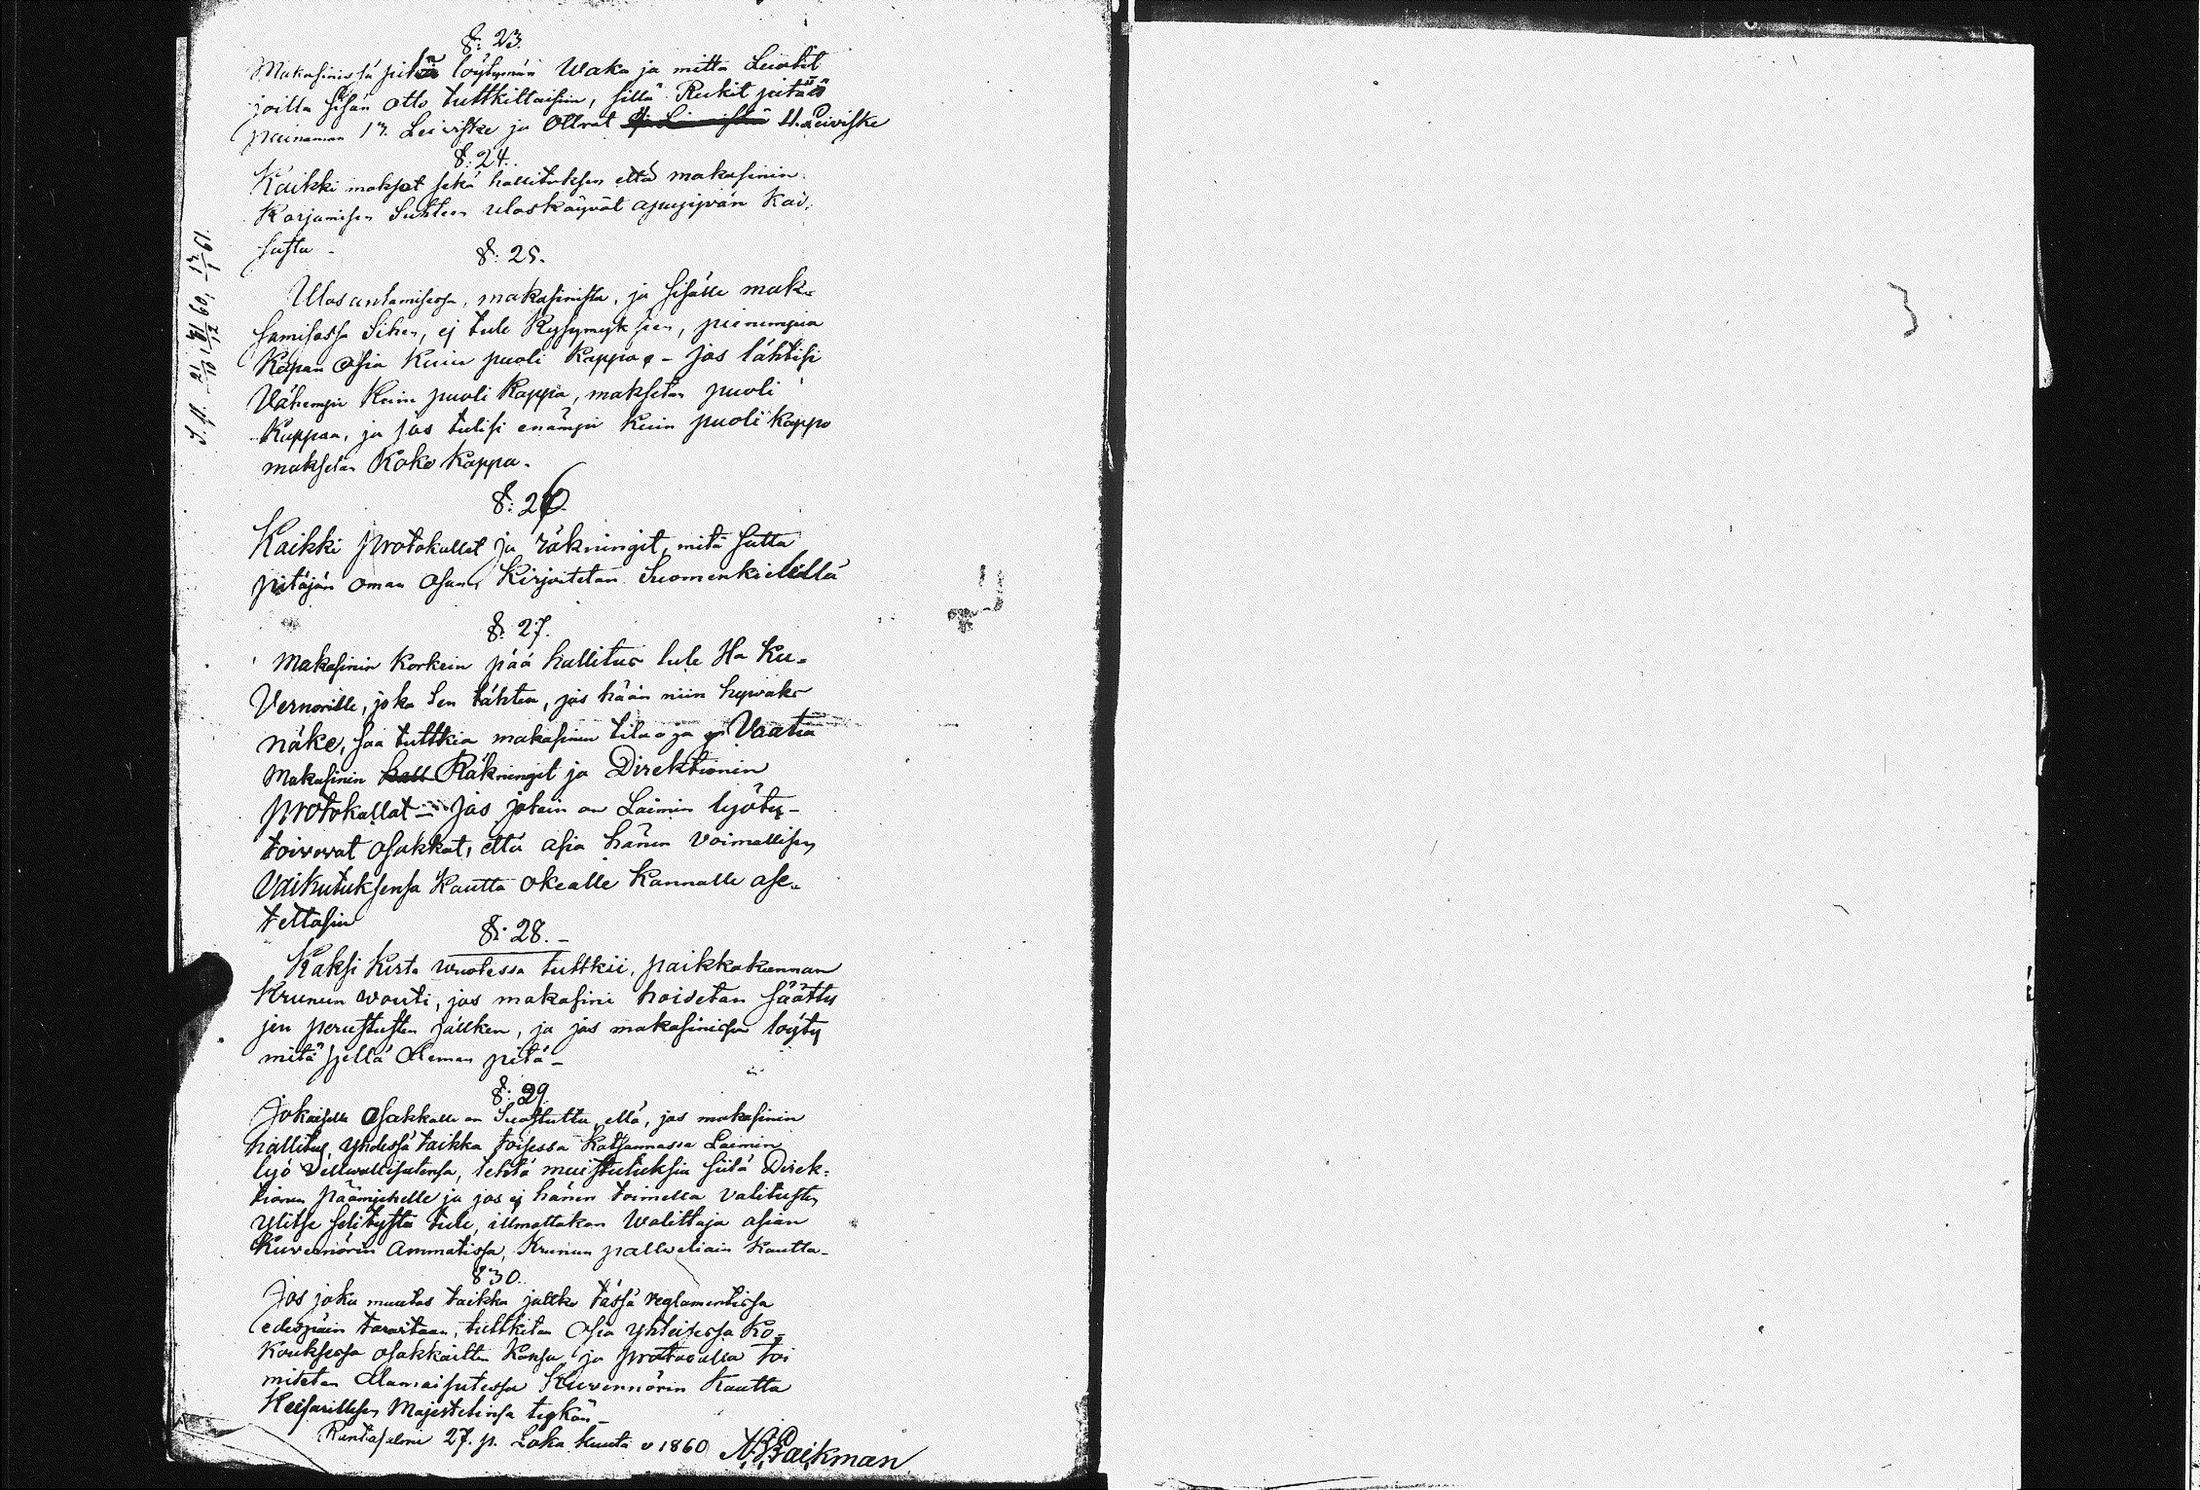 §: 23.
Makasinissa pitää löytymän Waka ja mitta Leiolit
joilla sisän otto tuttkittaisiin, sillä Rukit pitää
painaman 17. Leiviske ja Ottrat 11. Leiviske
§: 24.
Kaikki maksot sekä hallituksen että makasinin
Korjamisen Suhteen uloskäyvät apujyvän Kas,
sasta -
§: 25.
Ulosantamisessa, makasinista, ja sisälle mak-
samisessa Sihen, ej tule Kysymyksen, pienempiä
Kapan Osia Kuin puoli Kappaa - jos lähtisi
Vähempi Kuin puoli Kappa, maksetan puoli
Kappaa, ja jos tulisi enämpi Kuin puoli Kappa
maksetan Koko Kappa.
§: 26.
Kaikki Protokullat ja räkningit, mitä sutta
pitäjän oman Osan, Kirjoitetan Suomenkielellä
§. 27.
Makasinin Korkein pää hallitus tule Ha Ku-
Vernorille, joka Sen tähten, jos hään niin hywäks
näke, saa tuttkia makasinin tilaa ja Vaatia
Makasinin Räkningit ja Direktionin
Protokallat - jos jotain on Laimin lyöty -
toivovat osakkat, että asia hänen Voimallisen
Vaikutuksensa Kautta okealle Kannalle ase-
tettasin
§: 28. -
Kaksi Kerta wuotessa tuttkii, paikkakunnan
Krunun wouti, jos makasini hoidetan säätty
jen perustusten jällken, ja jos makasinissa löyty
mitä sjellä Oleman pitä -
§: 29.
Jokaisella Osakkalle on Suostuttu, että, jos makasinin
hallitus, yhdessä taikka toisessa Katsannossa Laimin
lyö Vellwollisutensa, tehtä muistutuksia siitä Direk-
tionin Päämjehelle ja jos ej hänen toimella valitusten
ylitse selitystä tule, illmottakan Walittaja asian
Kuvernörin Ammatissa, Krunun pallweliain Kautta -
§ 30.
Jos joku muutos taikka jattko tässä reglamentissa
edespäin tarvitaan, tuttkitan Osia yhteisessa Ko-
Kouksessa osakkaitten Kansa, ja protocolla toi
mitetan Alamaisutessa Kuvernörin Kautta
Keisarillisen Majestetinsa tykön -
Rantasalmi 27. p. Loka kuuta v 1860 N. Backman
3